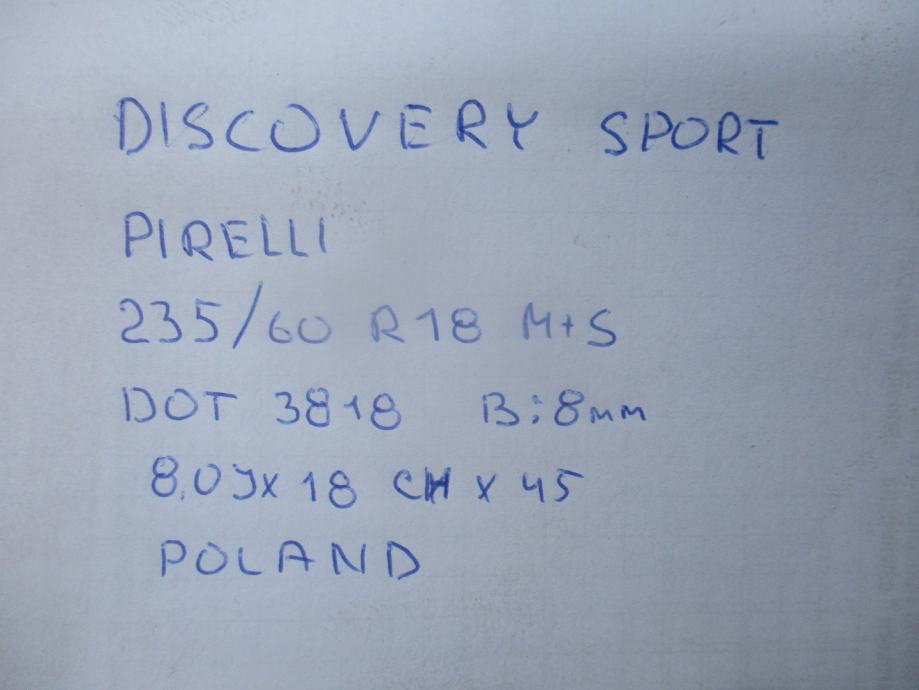 DISCOVERY SPORT
PIRELLI
235/60 R18 M+S
DOT 3818 B:8mm
8.0Jx18 CH x 45
POLAND